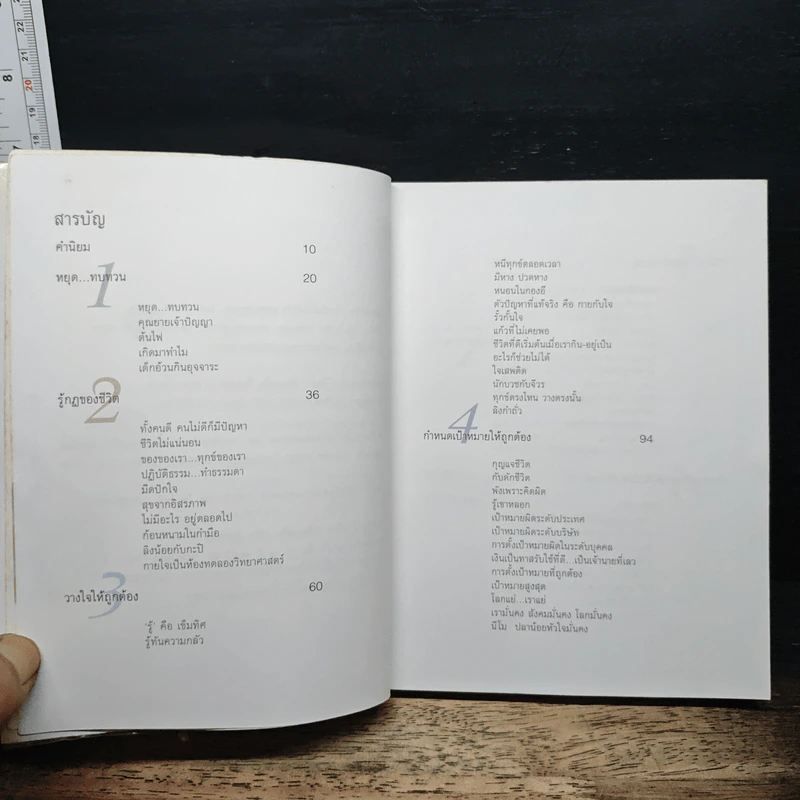 สารบัญ
คำนิยม 10
1
หยุด...ทบทวน 20
หยุด...ทบทวน
คุณยายเจ้าปัญญา
ต้นไฟ
เกิดมาทำไม
เด็กอ้วนกินอุจจาระ
2
รู้กฎของชีวิต 36
ทั้งคนดี คนไม่ดีก็มีปัญหา
ชีวิตไม่แน่นอน
ของของเรา...ทุกข์ของเรา
ปฏิบัติธรรม...ทำธรรมดา
มีดปักใจ
สุขจากอิสรภาพ
ไม่มีอะไร อยู่ตลอดไป
ก้อนหนามในกำมือ
ลิงน้อยกับกะปิ
กายใจเป็นห้องทดลองวิทยาศาสตร์
3
วางใจให้ถูกต้อง 60
'รู้' คือ เข็มทิศ
รู้ทันความกลัว
หนีทุกข์ตลอดเวลา
มีหาง ปวดหาง
หนอนในกองอึ
ตัวปัญหาที่แท้จริง คือ กายกับใจ
รั้วกั้นใจ
แก้วที่ไม่เคยพอ
ชีวิตที่ดีเริ่มต้นเมื่อเรากิน-อยู่เป็น
อะไรก็ช่วยไม่ได้
ใจเสพติด
นักบวชกับจีวร
ทุกข์ตรงไหน วางตรงนั้น
ลิงกำถั่ว
4
กำหนดเป้าหมายให้ถูกต้อง 94
กุญแจชีวิต
กับดักชีวิต
พังเพราะคิดผิด
รู้เขาหลอก
เป้าหมายผิดระดับประเทศ
เป้าหมายผิดระดับบริษัท
การตั้งเป้าหมายผิดในระดับบุคคล
เงินเป็นทาสรับใช้ที่ดี...เป็นเจ้านายที่เลว
การตั้งเป้าหมายที่ถูกต้อง
เป้าหมายสูงสุด
โลกแย่...เราแย่
เรามั่นคง สังคมมั่นคง โลกมั่นคง
นีโม ปลาน้อยหัวใจมั่นคง
8
22
21
20
19
18